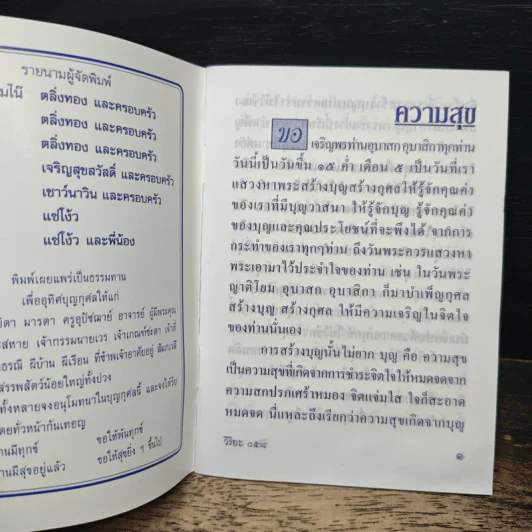 รายนามผู้จัดพิมพ์
ตลิ่งทอง และครอบครัว
ตลิ่งทอง และครอบครัว
ตลิ่งทอง และครอบครัว
เจริญสุขสวัสดิ์ และครอบครัว
เชาว์นาวิน และครอบครัว
แซ่โง้ว
แซ่โง้ว และพี่น้อง
พิมพ์เผยแพร่เป็นธรรมทาน
เพื่ออุทิศบุญกุศลให้แก่
บิดา มารดา ครูอุปัชฌาย์ อาจารย์ ผู้มีพระคุณ
สหาย เจ้ากรรมนายเวร เจ้าเกณฑ์ชะตา เจ้าที่
ธรณี ผีบ้าน ผีเรือน ที่ข้าพเจ้าอาศัยอยู่ สัมภเวสี
สรรพสัตว์น้อยใหญ่ทั้งปวง
ทั้งหลายจงอนุโมทนาในบุญกุศลนี้ และจงได้รับ
โดยทั่วหน้ากันเทอญ
านมีทุกข์ ขอให้พ้นทุกข์
านมีสุขอยู่แล้ว ขอให้สุขยิ่ง ๆ ขึ้นไป
ความสุข
ขอ เจริญพรท่านอุบาสก อุบาสิกาทุกท่าน
วันนี้เป็นวันขึ้น ๑๕ ค่ำ เดือน ๕ เป็นวันที่เรา
แสวงหาพระสร้างบุญสร้างกุศลให้รู้จักคุณค่า
ของเราที่มีบุญวาสนา ให้รู้จักบุญ รู้จักคุณค่า
ของบุญและคุณประโยชน์ที่จะพึงได้ จากการ
กระทำของเราทุกๆท่าน ถึงวันพระควรแสวงหา
พระเอามาไว้ประจำใจของท่าน เช่น ในวันพระ
ญาติโยม อุบาสก อุบาสิกา ก็มาบำเพ็ญกุศล
สร้างบุญ สร้างกุศล ให้มีความเจริญในจิตใจ
ของท่านนั่นเอง
การสร้างบุญนั้นไม่ยาก บุญ คือ ความสุข
เป็นความสุขที่เกิดจากการชำระจิตใจให้หมดจดจาก
ความสกปรกเศร้าหมอง จิตแจ่มใส ใจก็สะอาด
หมดจด นี่แหละถึงเรียกว่าความสุขเกิดจากบุญ
วิริยะ ๐๕๘
๑